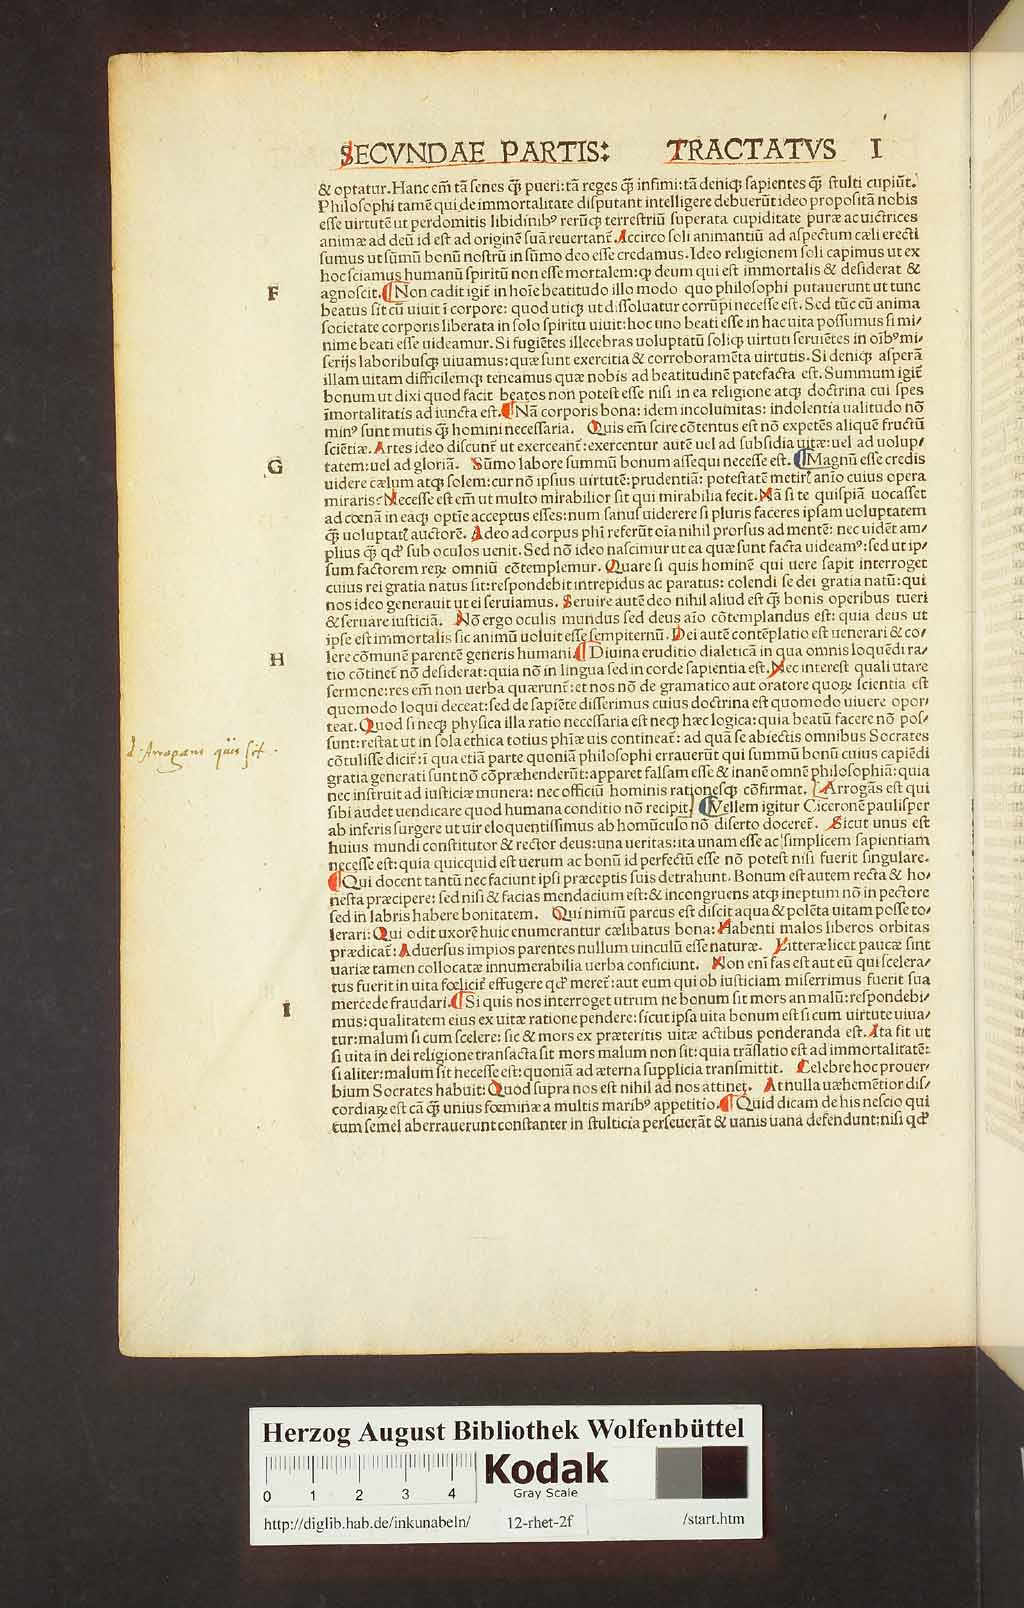 SECVNDAE PARTIS: TRACTATVS I
& optatur. Hanc em̄ tā senes q̄ꝫ pueri: tā reges q̄ꝫ infimi: tā deniqꝫ sapientes q̄ꝫ stulti cupiūt.
Philosophi tamē qui de immortalitate disputant intelligere debuerūt ideo propositā nobis
esse uirtutē ut perdomitis libidinibꝰ rerūqꝫ terrestriū superata cupiditate puræ ac uictrices
animæ ad deū id est ad originē suā reuertanť. Accirco soli animantiū ad aspectum cæli erecti
sumus ut sūmū bonū nostrū in sūmo deo esse credamus. Ideo religionem soli capimus ut ex
hoc sciamus humanū spiritū non esse mortalem: qꝫ deum qui est immortalis & desiderat &
F
agnoscit. ¶ Non cadit igiť in hoīe beatitudo illo modo quo philosophi putauerunt ut tunc
beatus sit cū uiuit ī corpore: quod utiqꝫ ut dissoluatur corrūpi necesse est. Sed tūc cū anima
societate corporis liberata in solo spiritu uiuit: hoc uno beati esse in hac uita possumus si mi/
nime beati esse uideamur. Si fugiētes illecebras uoluptatū soliqꝫ uirtuti seruiētes in oībꝰ mi/
serijs laboribusqꝫ uiuamus: quæ sunt exercitia & corroboramēta uirtutis. Si deniqꝫ asperā
illam uitam difficilemqꝫ teneamus quæ nobis ad beatitudinē patefacta est. Summum igiť
bonum ut dixi quod facit beatos non potest esse nisi in ea religione atqꝫ doctrina cui spes
īmortalitatis ad iuncta est. ¶ Nā corporis bona: idem incolumitas: indolentia ualitudo nō
minꝰ sunt mutis q̄ꝫ homini necessaria. Quis em̄ scire cōtentus est nō expetēs aliquē fructū
sciētiæ. Artes ideo discunť ut exerceanť: exercentur autē uel ad subsidia uitæ: uel ad uolup/
G
tatem: uel ad gloriā. Sūmo labore summū bonum assequi necesse est. ¶ Magnū esse credis
uidere cælum atqꝫ solem: cur nō ipsius uirtutē: prudentiā: potestatē metiris aīo cuius opera
miraris? Necesse est em̄ ut multo mirabilior sit qui mirabilia fecit. Nā si te quispiā uocasset
ad cœnā in eaqꝫ optīe acceptus esses: num sanus uiderere si pluris faceres ipsam uoluptatem
q̄ꝫ uoluptatis auctorē. Adeo ad corpus phī referūt oīa nihil prorsus ad mentē: nec uidēt am/
plius q̄ꝫ qď sub oculos uenit. Sed nō ideo nascimur ut ea quæ sunt facta uideamꝰ: sed ut ip/
sum factorem reꝝ omniū cōtemplemur. Quare si quis hominē qui uere sapit interroget
cuius rei gratia natus sit: respondebit intrepidus ac paratus: colendi se dei gratia natū: qui
nos ideo generauit ut ei seruiamus. Seruire autē deo nihil aliud est q̄ꝫ bonis operibus tueri
& seruare iusticiā. Nō ergo oculis mundus sed deus aīo cōtemplandus est: quia deus ut
ipse est immortalis sic animū uoluit esse sempiternū. Dei autē contēplatio est uenerari & co/
H
lere cōmunē parentē generis humani. ¶ Diuina eruditio dialeticā in qua omnis loquēdi ra/
tio cōtineť nō desiderat: quia nō in lingua sed in corde sapientia est. Nec interest quali utare
sermone: res em̄ non uerba quærunť: et nos nō de gramatico aut oratore quoꝝ scientia est
quomodo loqui deceat: sed de sapiēte disserimus cuius doctrina est quomodo uiuere opor/
teat. Quod si neqꝫ physica illa ratio necessaria est neqꝫ hæc logica: quia beatū facere nō pos/
sunt: restat ut in sola ethica totius phīæ uis contineať: ad quā se abiectis omnibus Socrates
d. Arrogans quis sit.
cōtulisse diciť: ī qua etiā parte quoniā philosophi errauerūt qui summū bonū cuius capiēdi
gratia generati sunt nō cōpræhenderūt: apparet falsam esse & inanē omnē philosophiā: quia
nec instruit ad iusticiæ munera: nec officiū hominis rationesqꝫ cōfirmat. Arrogās est qui
sibi audet uendicare quod humana conditio nō recipit. ¶ Vellem igitur Ciceronē paulisper
ab inferis surgere ut uir eloquentissimus ab homūculo nō diserto docereť. Sicut unus est
huius mundi constitutor & rector deus: una ueritas: ita unam esse ac simplicem sapientiam
necesse est: quia quicquid est uerum ac bonū id perfectū esse nō potest nisi fuerit singulare.
¶ Qui docent tantū nec faciunt ipsi præceptis suis detrahunt. Bonum est autem recta & ho/
nesta præcipere: sed nisi & facias mendacium est: & incongruens atqꝫ ineptum nō in pectore
sed in labris habere bonitatem. Qui nimiū parcus est discit aqua & polēta uitam posse to/
lerari: Qui odit uxorē huic enumerantur cælibatus bona: Habenti malos liberos orbitas
prædicať: Aduersus impios parentes nullum uinculū esse naturæ. Litteræ licet paucæ sint
uariæ tamen collocatæ innumerabilia uerba conficiunt. Non enī fas est aut eū qui scelera/
tus fuerit in uita fœliciť effugere qď mereť: aut eum qui ob iusticiam miserrimus fuerit sua
I
mercede fraudari. ¶ Si quis nos interroget utrum ne bonum sit mors an malū: respondebi/
mus: qualitatem eius ex uitæ ratione pendere: sicut ipsa uita bonum est si cum uirtute uiua/
tur: malum si cum scelere: sic & mors ex præteritis uitæ actibus ponderanda est. Ita fit ut
si uita in dei religione transacta sit mors malum non sit: quia trāslatio est ad immortalitatē:
si aliter: malum sit necesse est: quoniā ad æterna supplicia transmittit. Celebre hoc prouer/
bium Socrates habuit: Quod supra nos est nihil ad nos attinet. At nulla uæhemētior dis/
cordiaꝝ est cā q̄ꝫ unius fœminæ a multis maribꝰ appetitio. ¶ Quid dicam de his nescio qui
cum semel aberrauerunt constanter in stulticia perseuerāt & uanis uana defendunt: nisi qď
Herzog August Bibliothek Wolfenbüttel
0 1 2 3 4
Kodak
Gray Scale
http://diglib.hab.de/inkunabeln/ 12-rhet-2f /start.htm